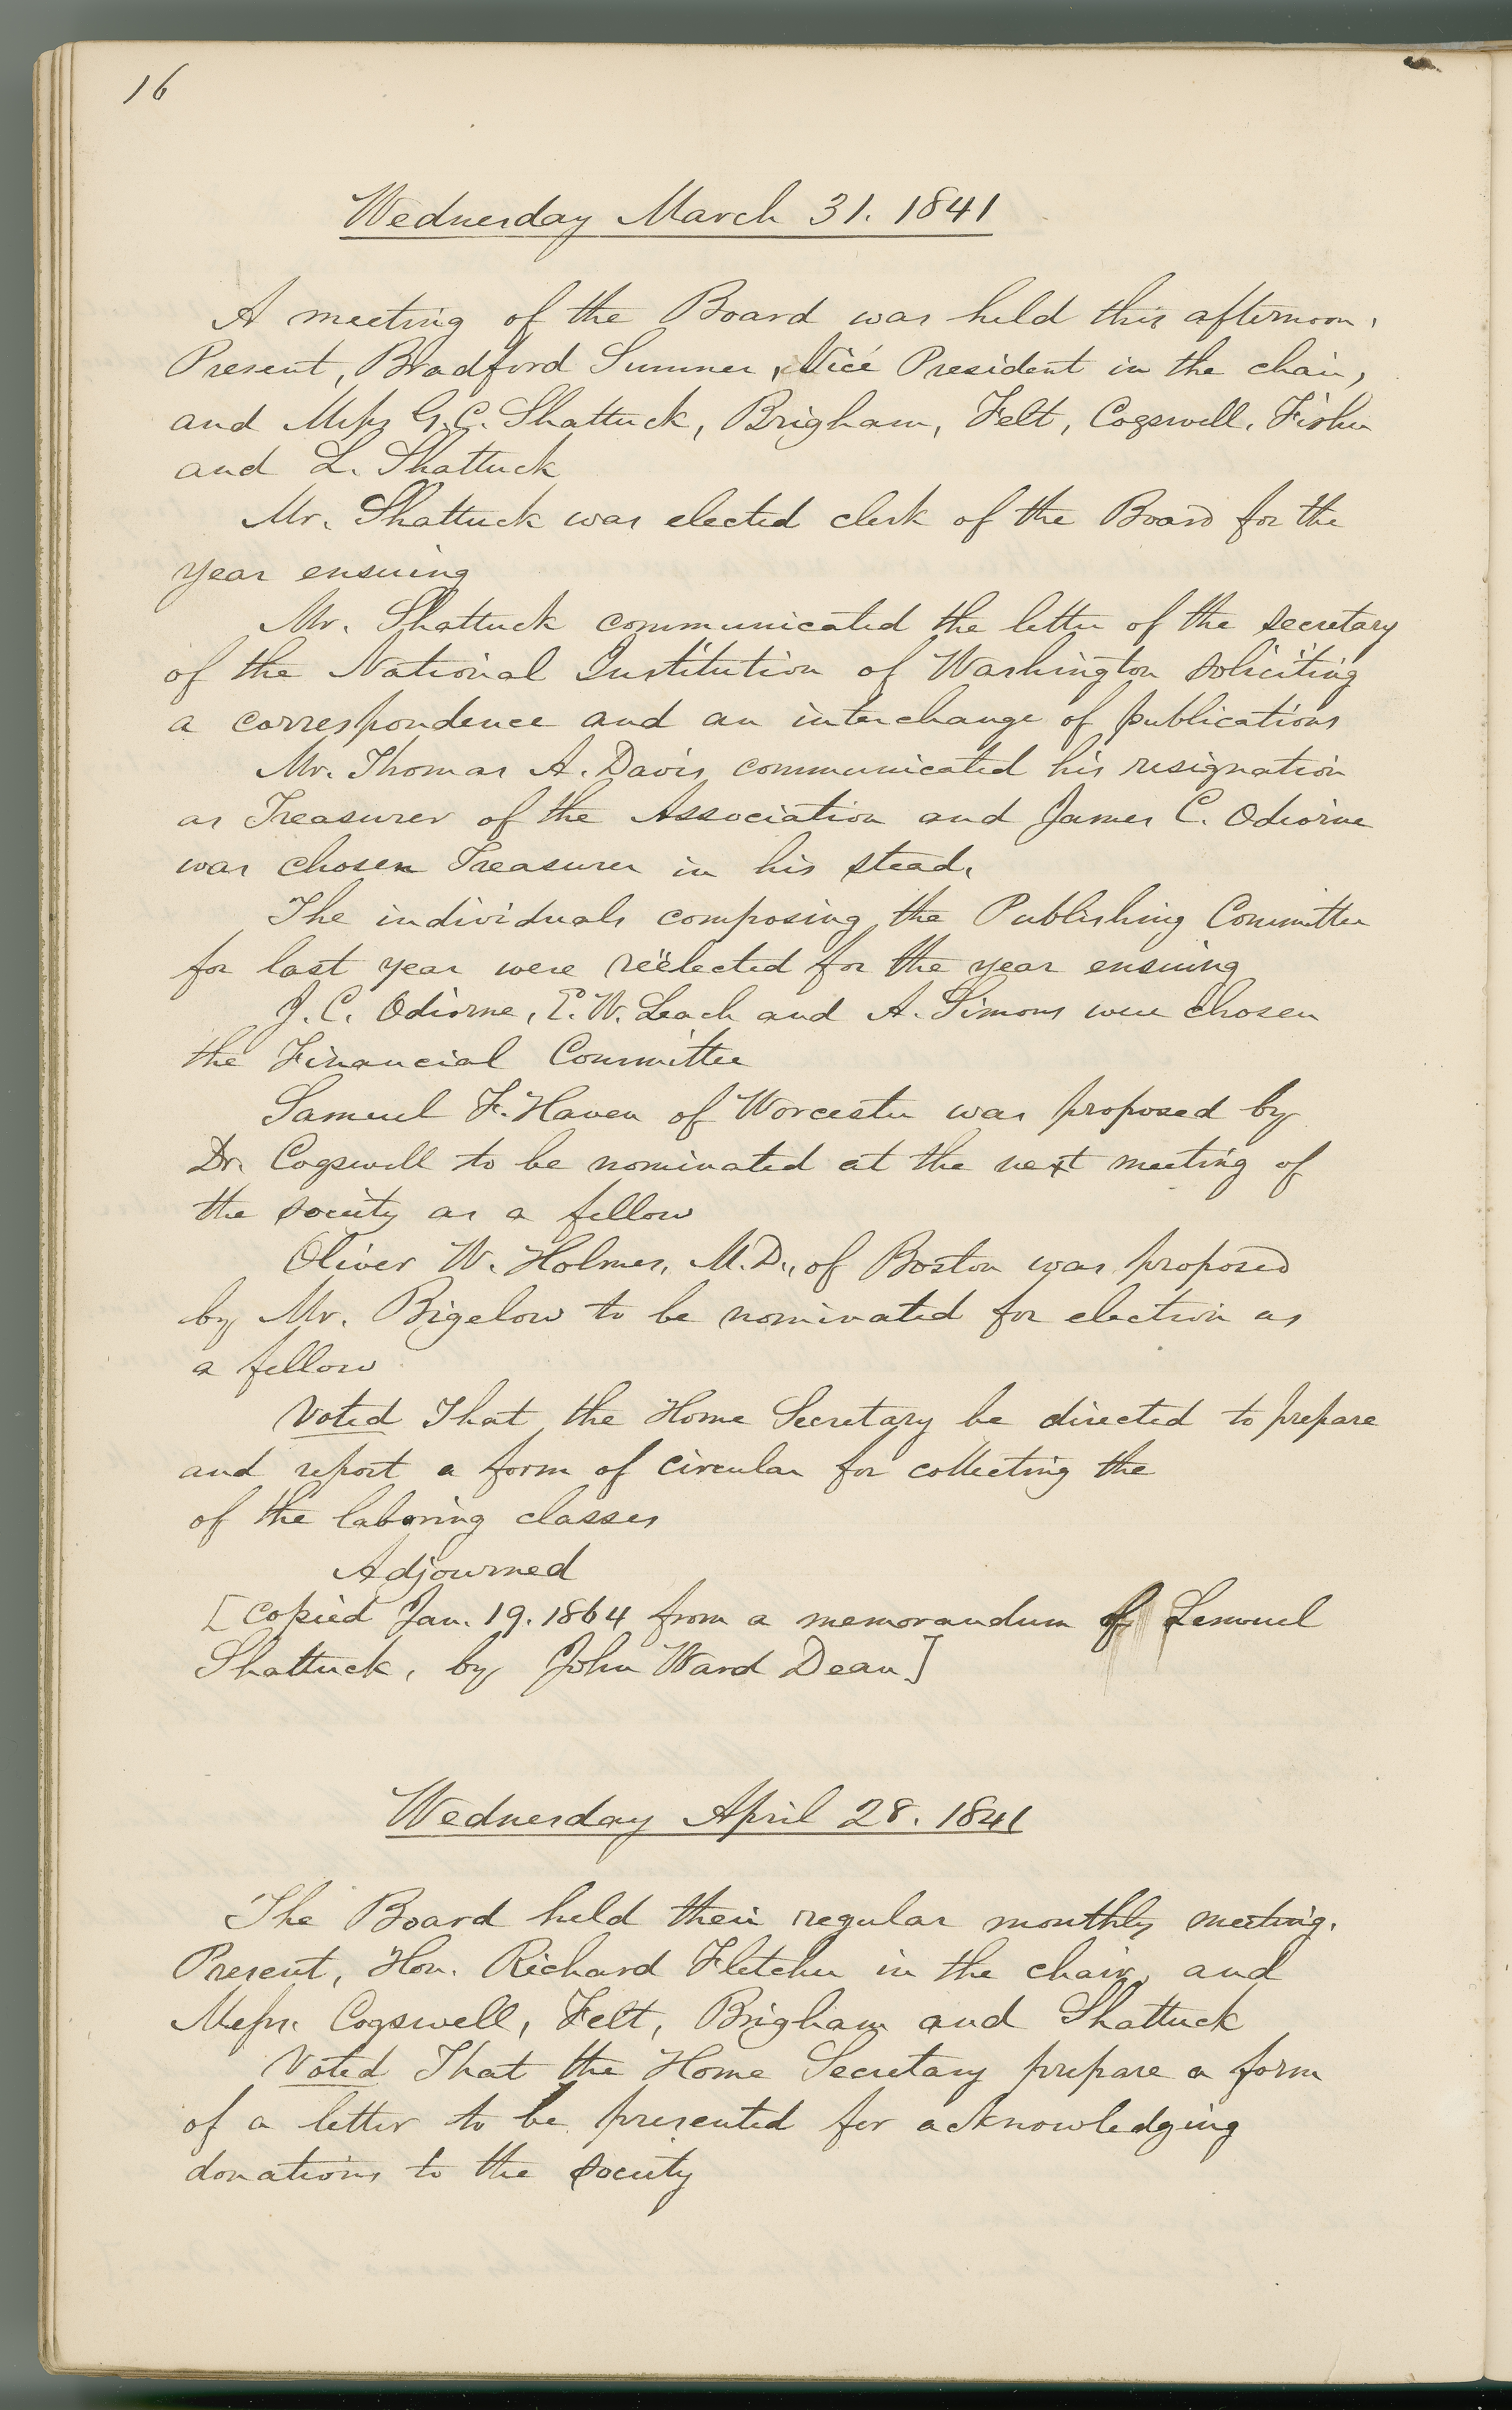 16
Wednesday March 31. 1841
A meeting of the Board was held this afternoon.
Present, Bradford Sumner, Vice President in the chair,
and Messrs G. C. Shattuck, Brigham, Felt, Cogswell, Fisher
and L. Shattuck
Mr. Shattuck was elected clerk of the Board for the
year ensuing
Mr. Shattuck communicated the letter of the secretary
of the National Institution of Washington soliciting
a correspondence and an interchange of publications
Mr. Thomas A. Davis communicated his resignation
as Treasurer of the Association and James C. Odiorne
was chosen Treasurer in his stead.
The individuals composing the Publishing Committee
for last year were reëlected for the year ensuing
J. C. Odiorne, E. W. Leach and A. Simons were chosen
the Financial Committee
Samuel F. Haven of Worcester was proposed by
Dr. Cogswell to be nominated at the next meeting of
the society as a fellow
Oliver W. Holmes, M.D., of Boston was proposed
by Mr. Bigelow to be nominated for election as
a fellow
Voted That the Home Secretary be directed to prepare
and report a form of circular for collecting the
of the laboring classes
Adjourned
[Copied Jan. 19. 1864 from a memorandum of Lemuel
Shattuck, by John Ward Dean]
Wednesday April 28. 1841
The Board held their regular monthly meeting.
Present, Hon. Richard Fletcher in the chair, and
Messrs. Cogswell, Felt, Brigham and Shattuck
Voted That the Home Secretary prepare a form
of a letter to be presented for acknowledging
donations to the society